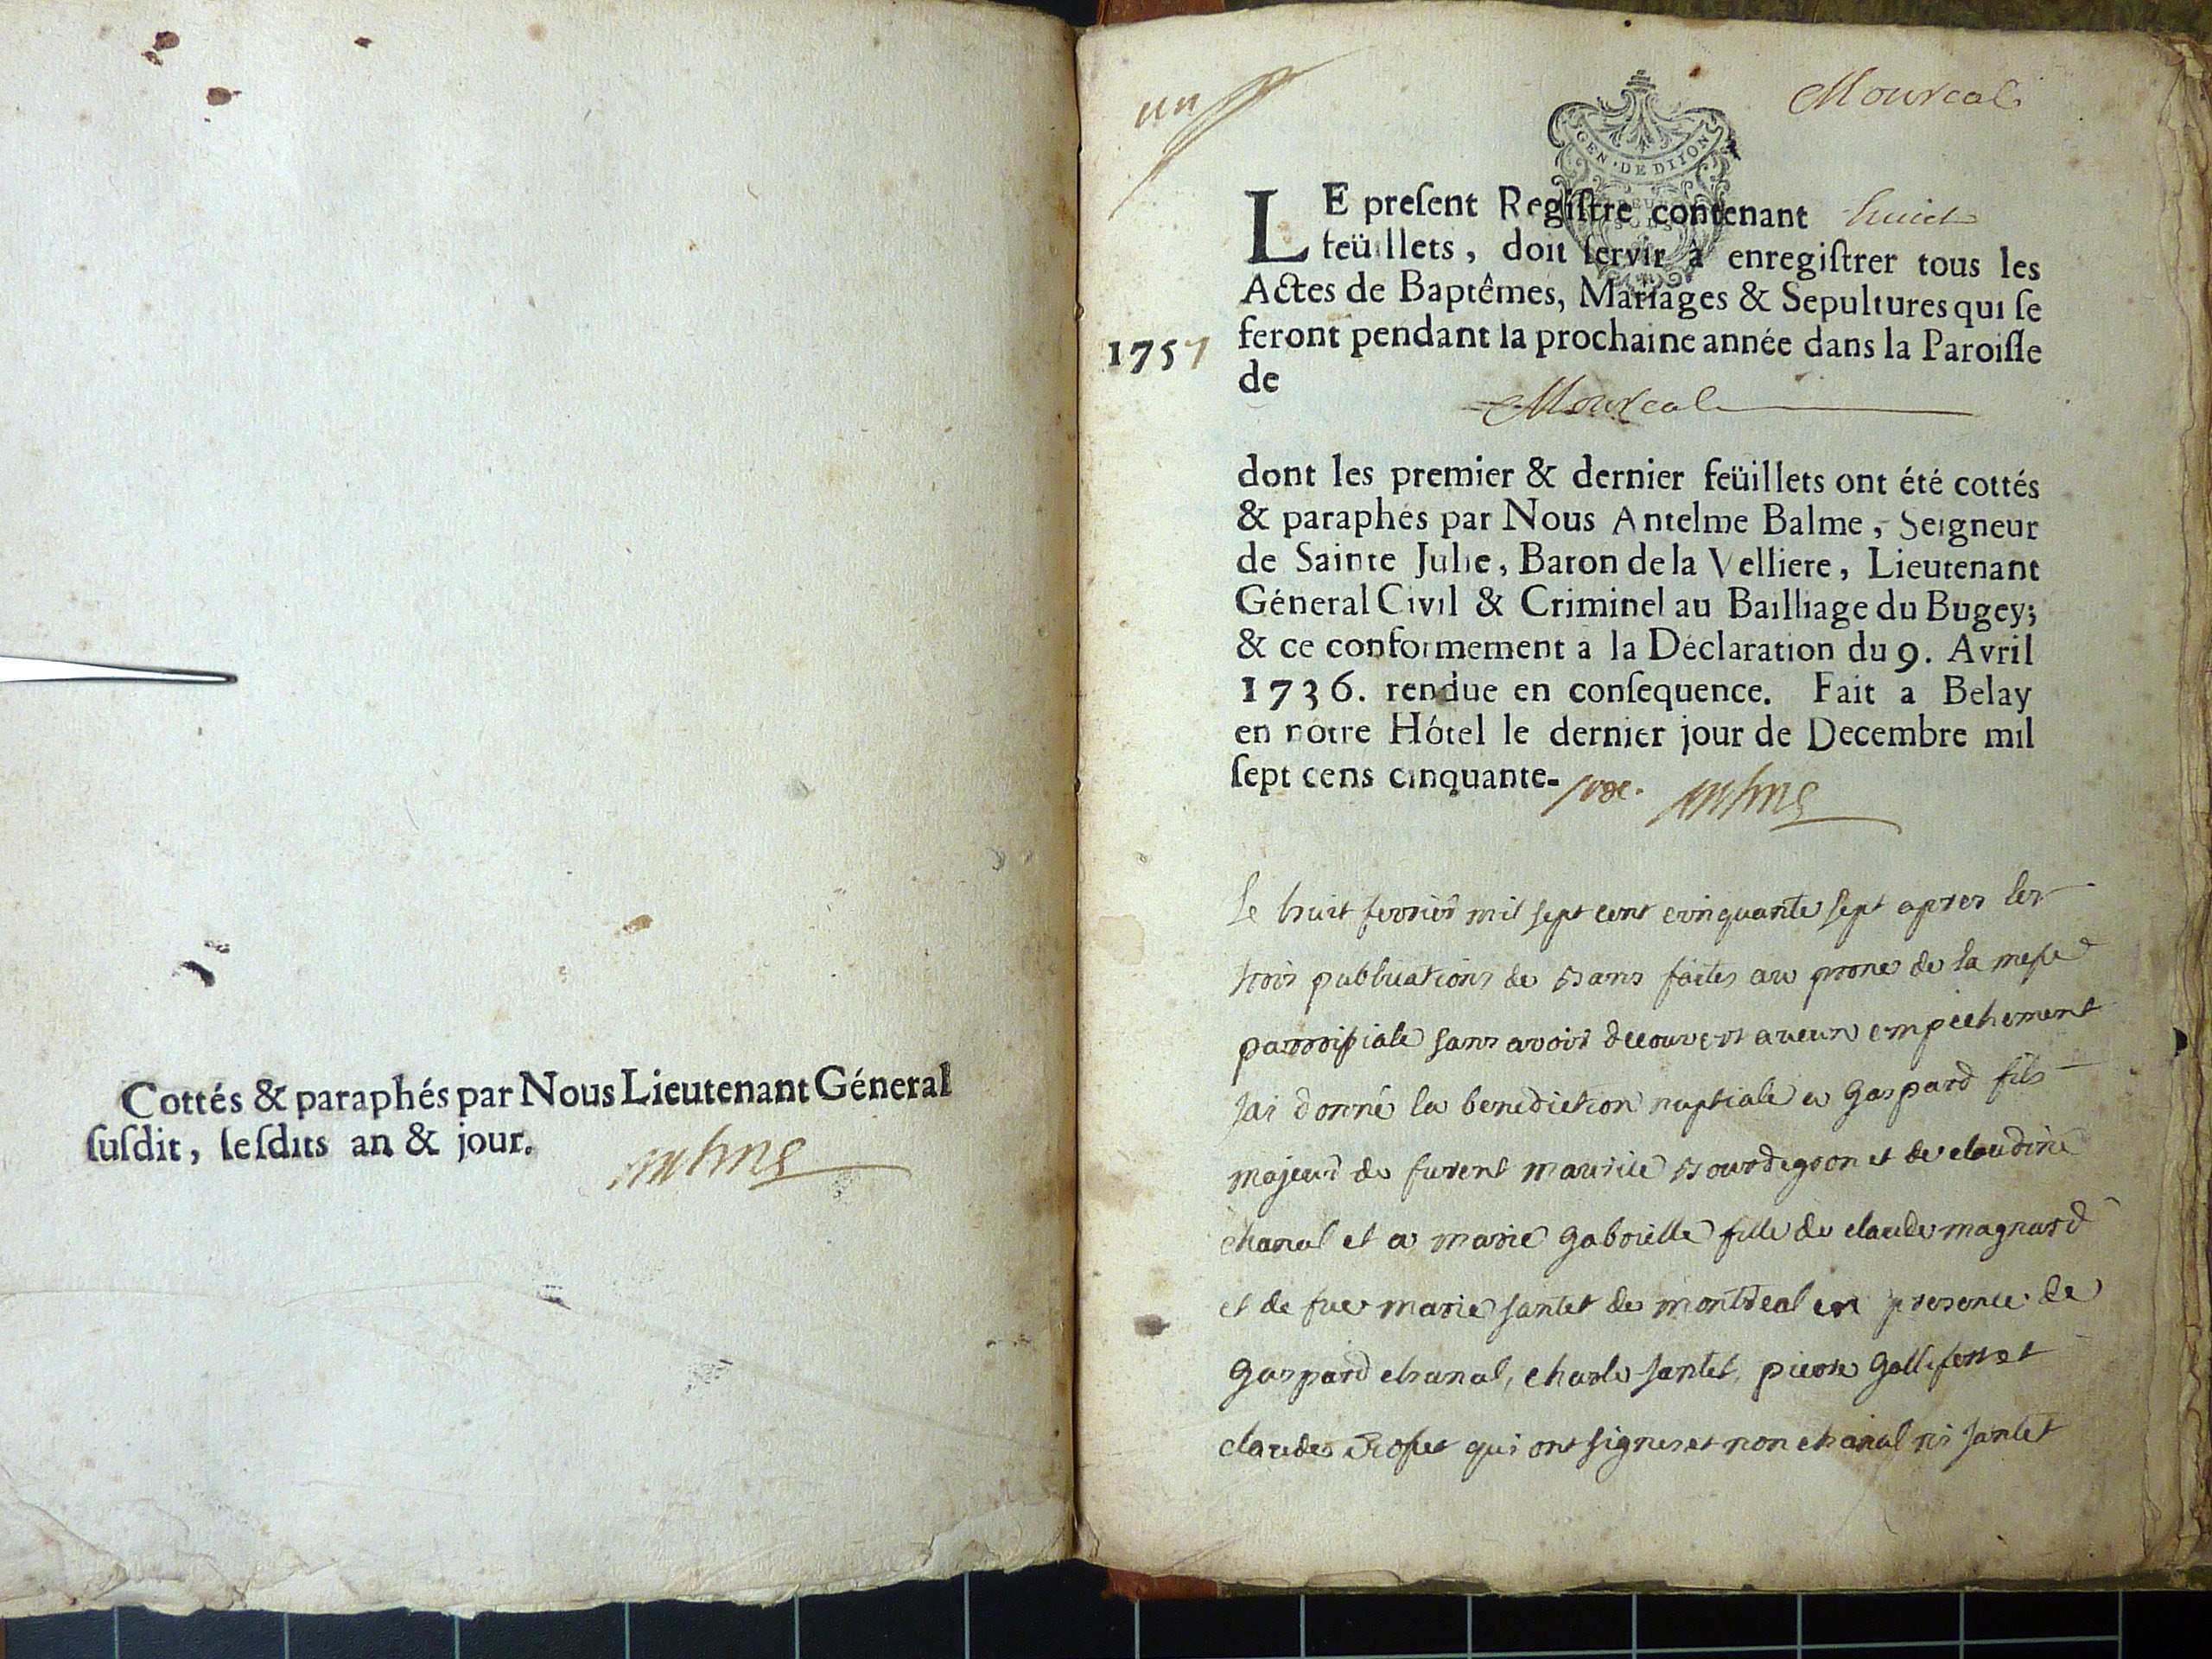 Cottés & paraphés par Nous Lieutenant Géneral
susdit, lesdits an & jour.
un
Montreal
GEN. DE DIJON
LE present Registre contenant huict
feüillets, doit servir à enregistrer tous les
Actes de Baptêmes, Mariages & Sepultures qui se
feront pendant la prochaine année dans la Paroisse
1757
de
Montreal
dont les premier & dernier feüillets ont été cottés
& paraphés par Nous Antelme Balme, Seigneur
de Sainte Julie, Baron de la Velliere, Lieutenant
Géneral Civil & Criminel au Bailliage du Bugey;
& ce conformement a la Déclaration du 9. Avril
1736. rendue en consequence. Fait a Belay
en notre Hôtel le dernier jour de Decembre mil
sept cens cinquante-
Le huit fevrier mil sept cent cinquante sept apres les
trois publications de bans faites au prone de la messe
parroissiale sans avoir decouvert aucun empechement
jai donné la benediction nuptiale a Gaspard fils
majeur de furent maurice bourdegron et de claudine
chanal et a marie Gabrielle fille de claude magnard
et de fue marie jantet de montreal en presence de
Gaspard chanal, charle jantet, pierre Golliferret
claude qui ont signes et non chanal ni jantet